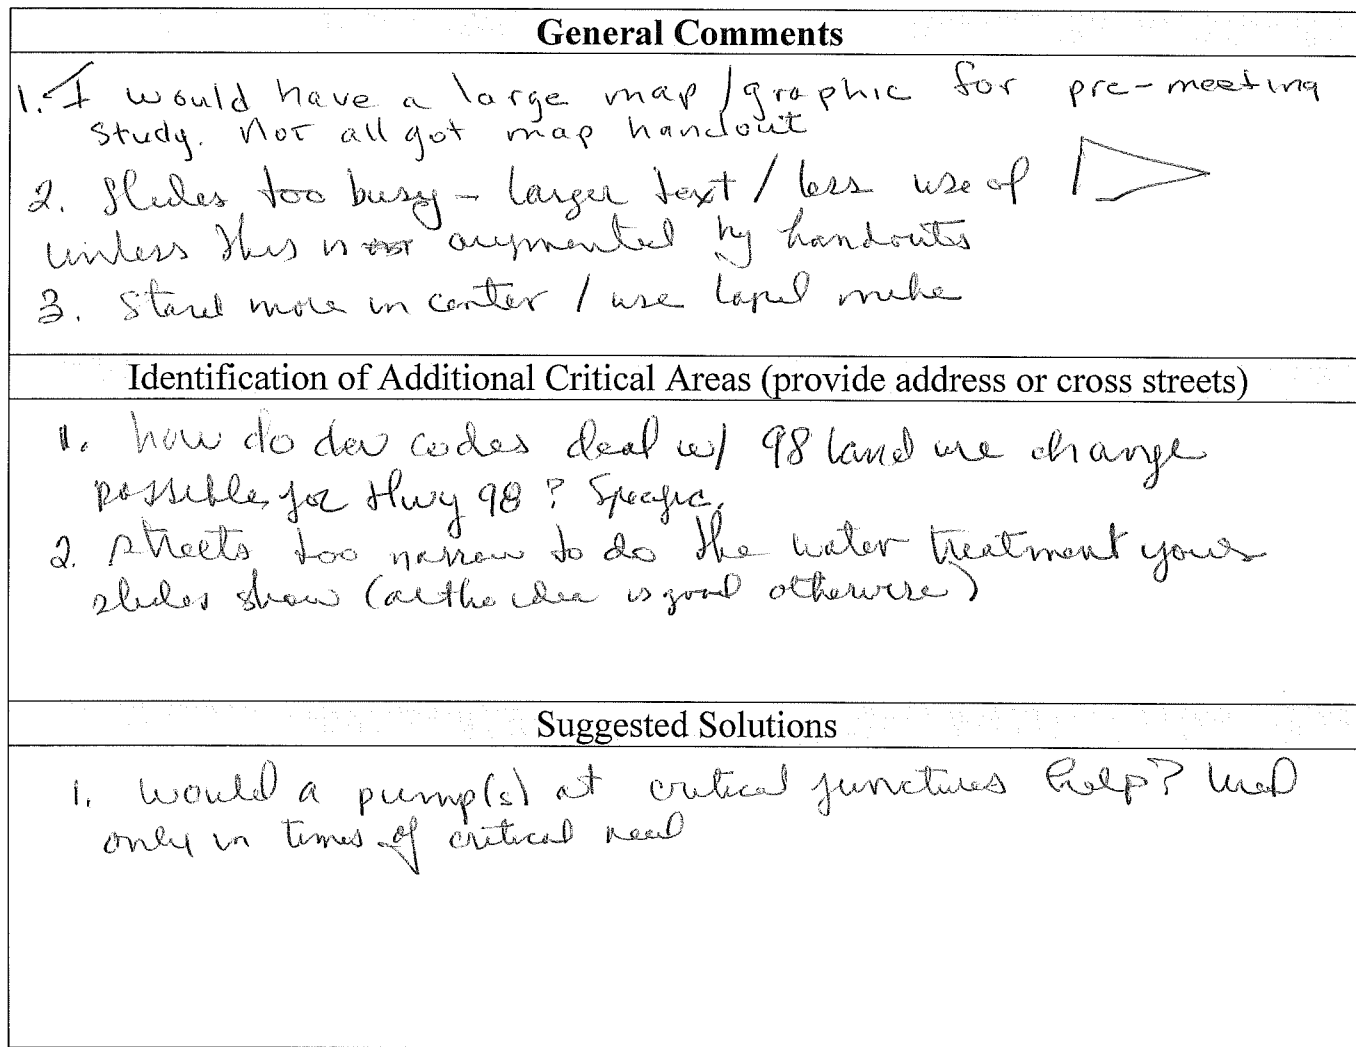 General Comments
1. I would have a large map/graphic for pre-meeting
study. Not all got map handout
2. Slides too busy - larger text / less use of
unless this is augmented by handouts
3. Stand more in center / use lapel mike
Identification of Additional Critical Areas (provide address or cross streets)
1. how do dev codes deal w/ 98 land use change
possible for Hwy 98? Specific.
2. streets too narrow to do the water treatment your
slides show ( idea is good otherwise)
Suggested Solutions
1. Would a pump(s) at critical junctures help? Used
only in times of critical need